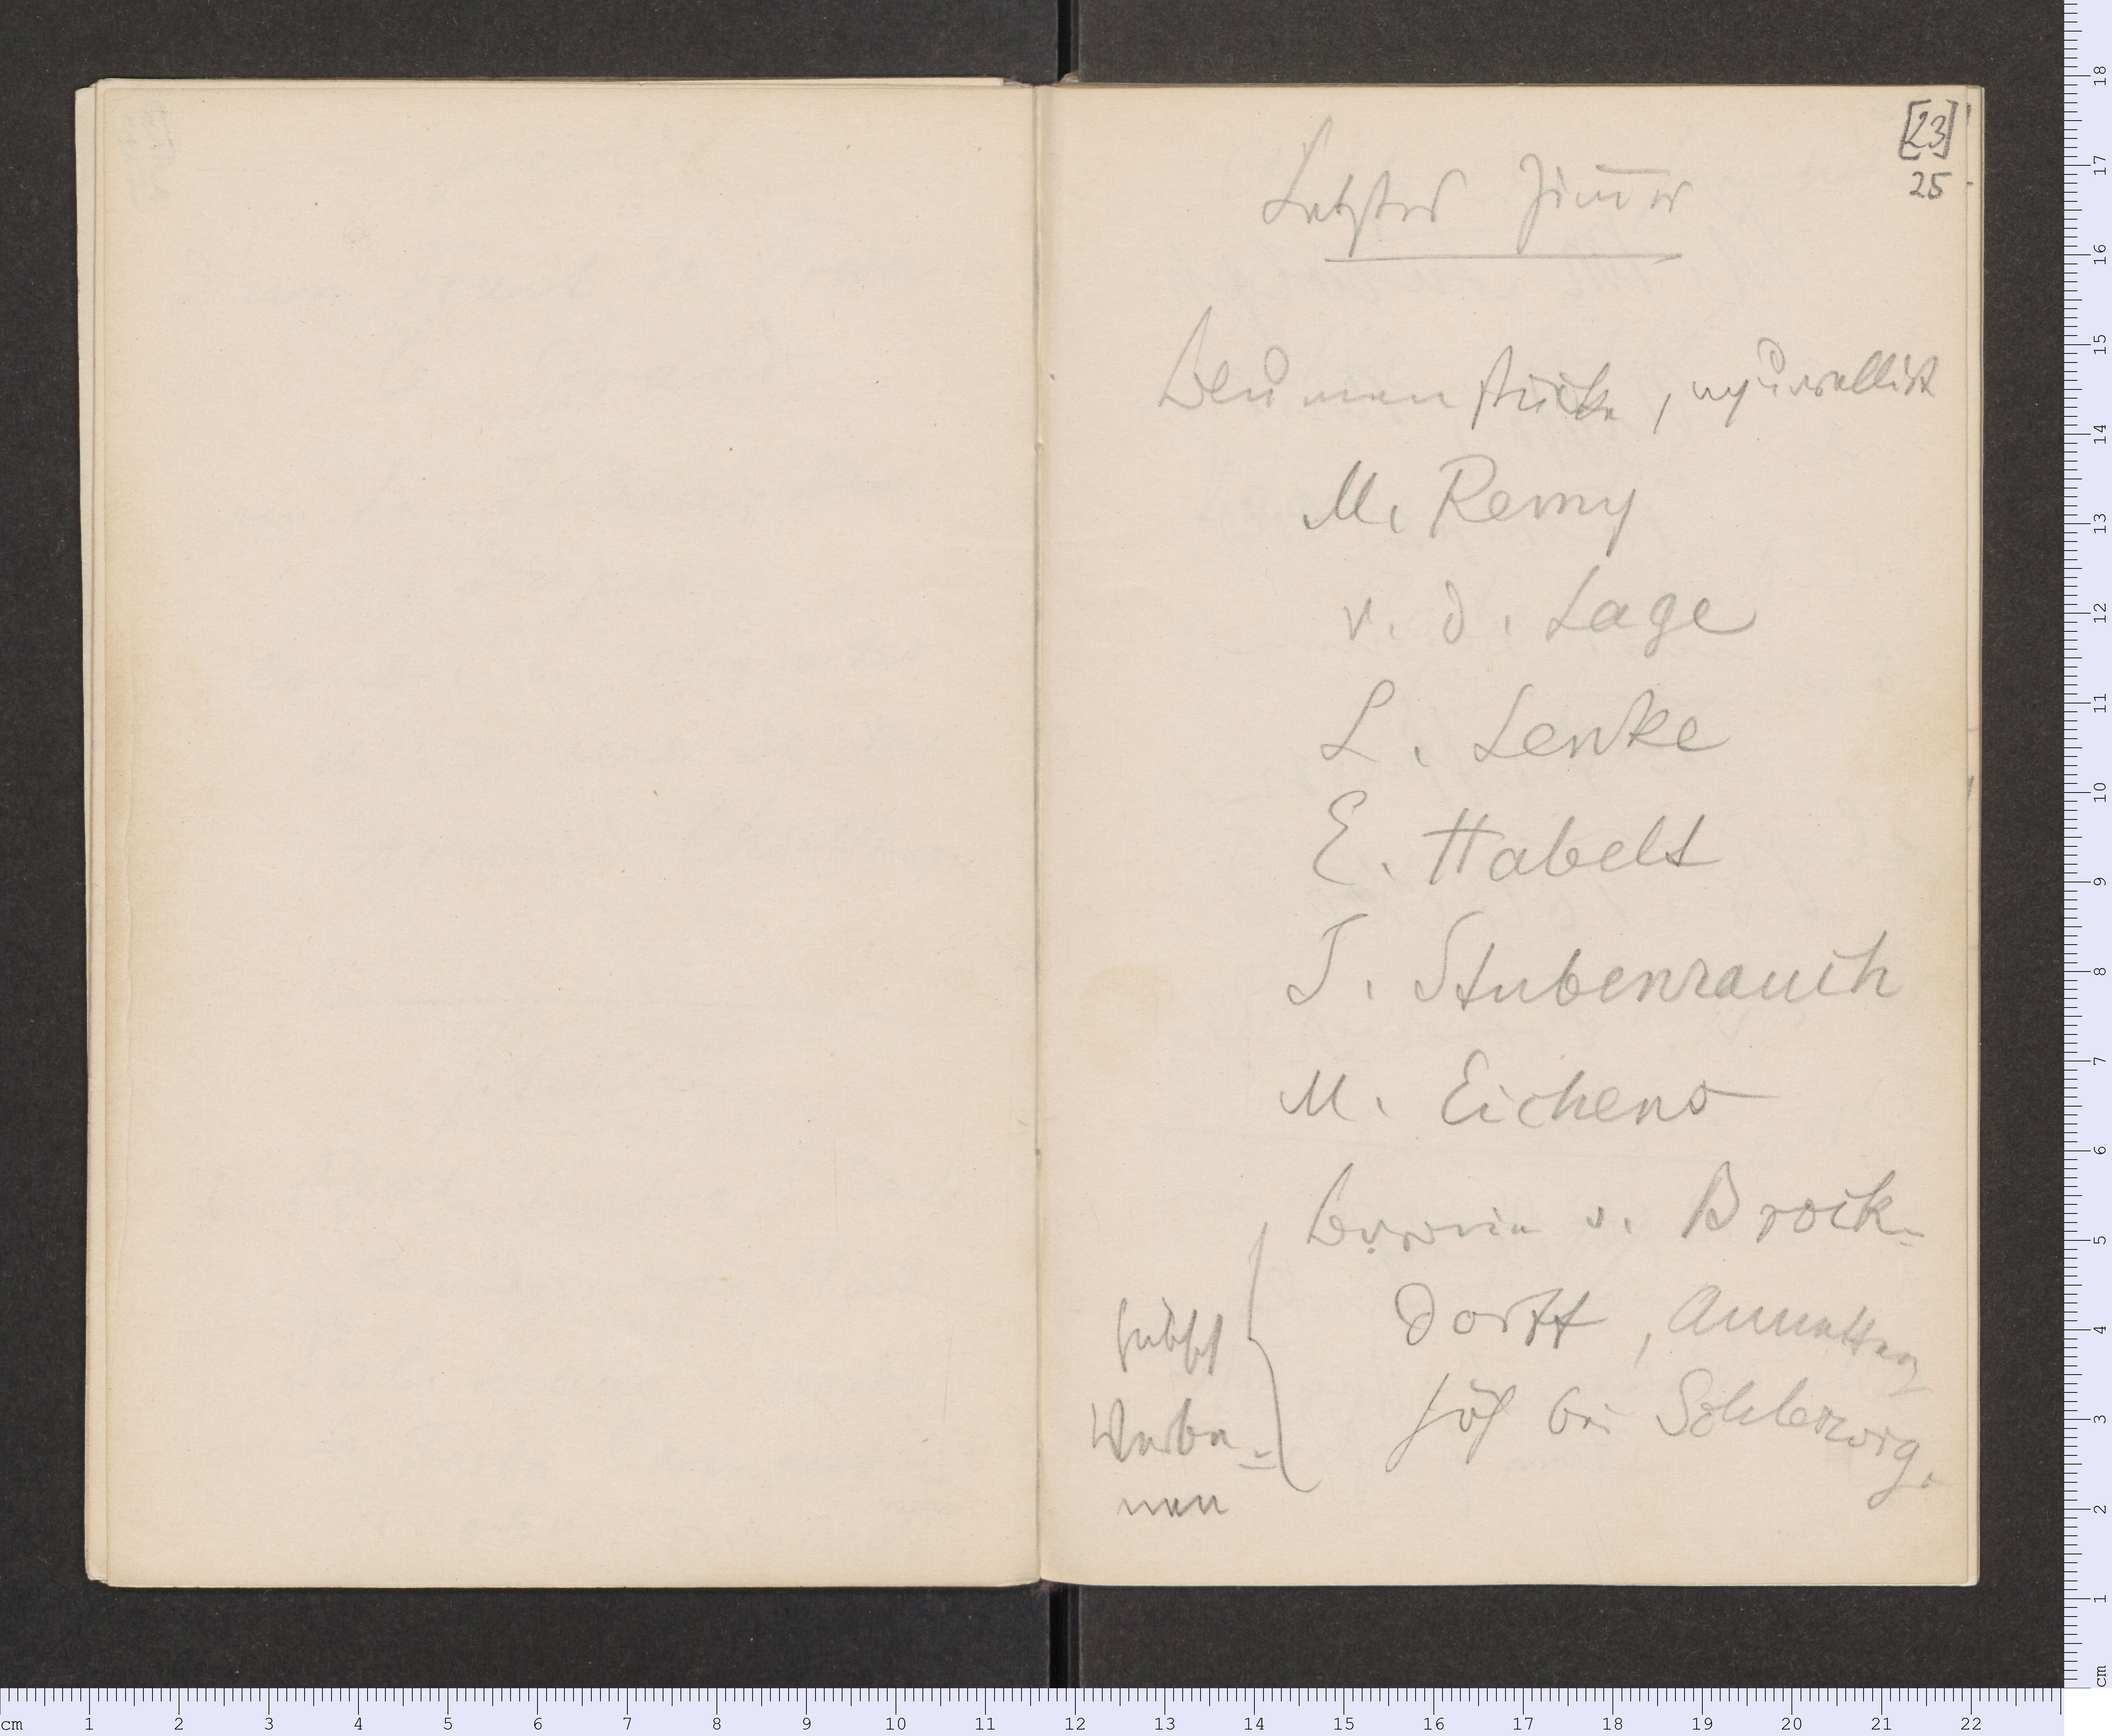 [23]
25
Letztes Zim̅er
Blumenstücke, aquarellirt
M. Remy
v. d. Lage
L. Lenke
E. Habelt
J. Stubenrauch
M. Eichens
Baronin v. Brock-
dorff, Annetten
höh bei Schleswig.
hübsch
Verbe-
nen